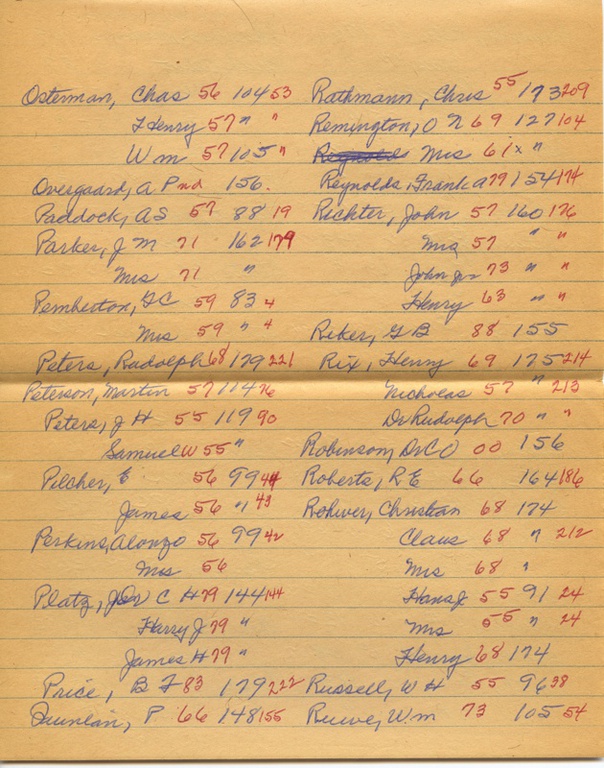 Osterman, Chas 56 104 53
F Henry 57 " "
Wm 57 105 "
Overgaard, A P nd 156.
Paddock, A S 57 88 19
Parker, J M 71 162 179
Mrs 71 "
Pemberton, G C 59 83 4
Mrs 59 " 4
Peters, Radolph 68 179 221
Peterson, Martin 57 114 76
Peters, J H 55 119 90
Samuel W 55 "
Pilcher, E 56 99 44
James 56 " 43
Perkins, Alonzo 56 99 42
Mrs 56
Platz, Dr C H 79 144 144
Harry J 79 "
James H 79 "
Price, B F 83 179 222
P 66 148 155
Rathmann, Chris 55 173 209
Remington, O N 69 127 104
Mrs 61 x "
Reynolds, Frank A 79 154 174
Richter, John 57 160 176
Mrs 57 " "
John Jr 73 " "
Henry 63 " "
Reker, G B 88 155
Rix, Henry 69 175 214
Nicholas 57 " 213
Dr Rudolph 70 " "
Robinson, Dr C O 00 156
Roberts, R E 66 164 186
Rohwer, Christian 68 174
Claus 68 " 212
Mrs 68 "
Hans J 55 91 24
Mrs 55 " 24
Henry 68 174
Russell, W H 55 96 38
Ruwe, Wm 73 105 54